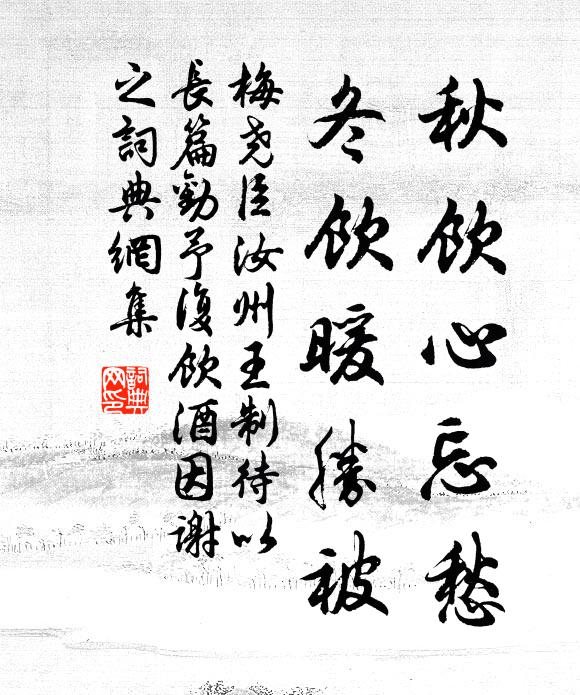 秋飲心忘愁
冬飲暖勝被
梅尧臣汝州王制待以
長篇勸予復飲酒因謝
之詞典網集
詞典
网印